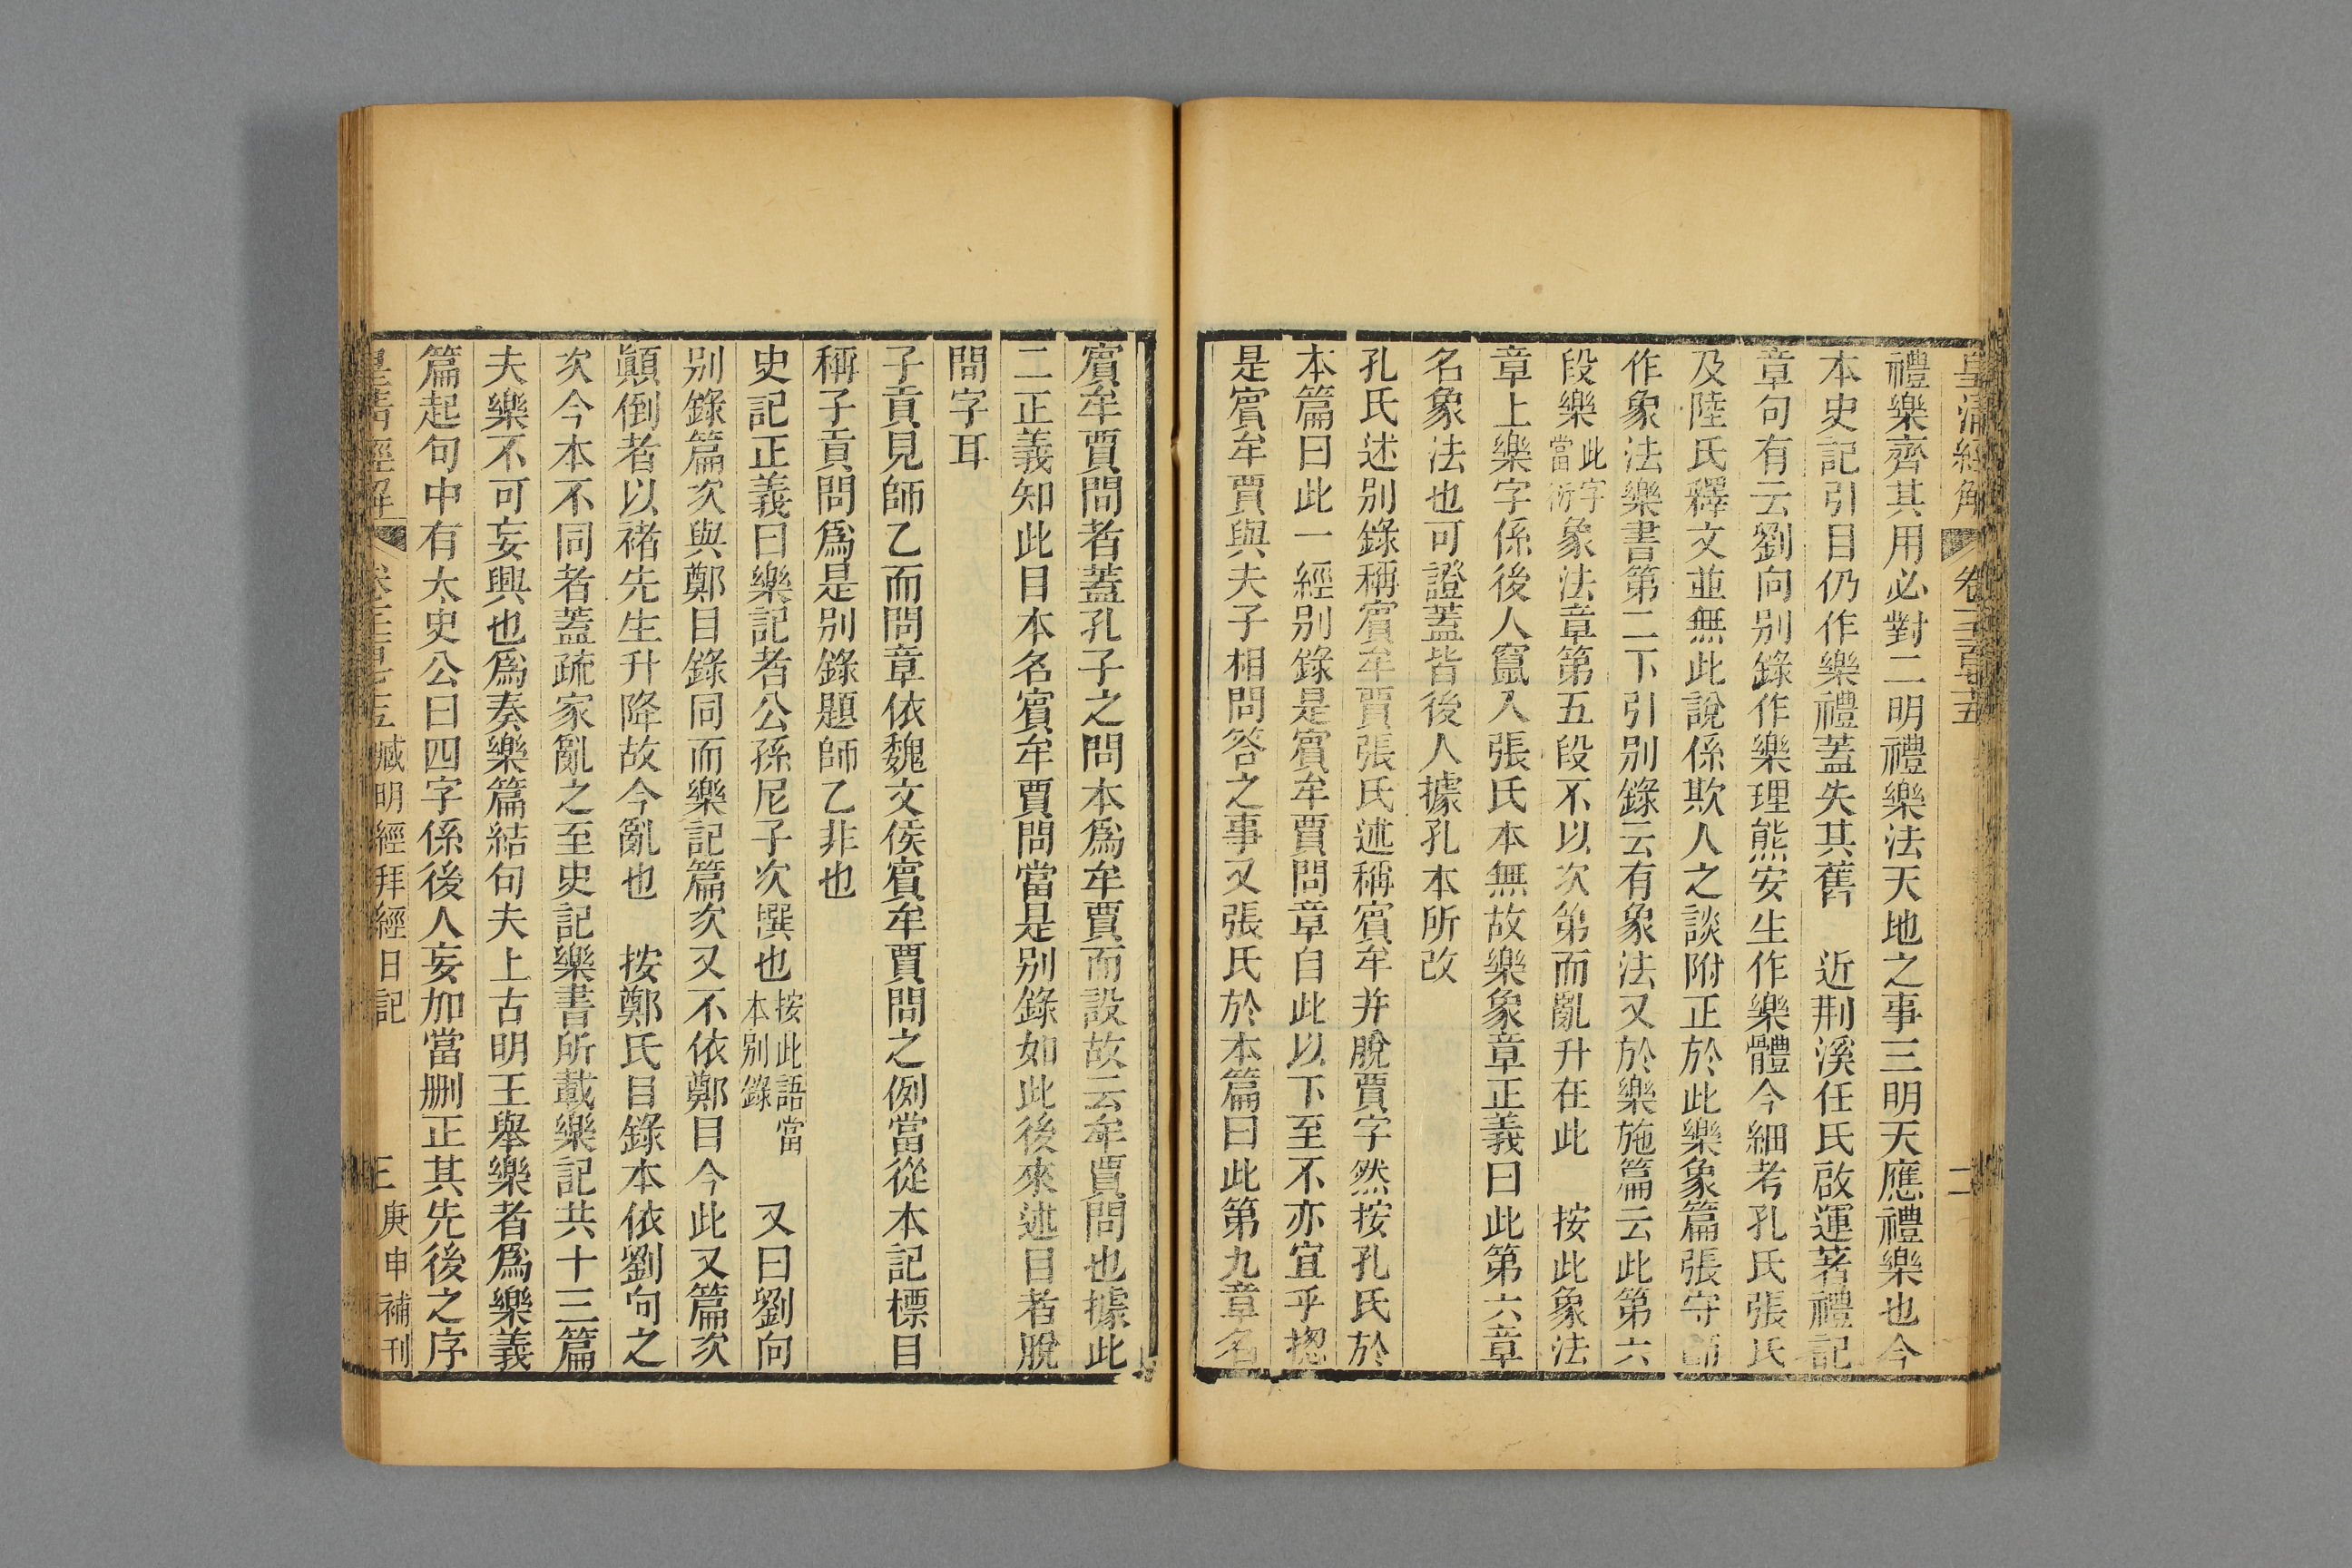 皇清經解
卷二
二
禮樂齊其用必對二明禮樂法天地之事三明天應禮樂也今
本史記引目仍作樂禮蓋失其舊　近荆溪任氏啟運著禮記
章句有云劉向别錄作樂理熊安生作樂體今細考孔氏張氏
及陸氏釋文並無此說係欺人之談附正於此樂象篇張守節
作象法樂書第二下引别錄云有象法又於樂施篇云此第六
段樂此字當衍象法章第五段不以次第而亂升在此　按此象法
章上樂字係後人竄入張氏本無故樂象章正義曰此第六章
名象法也可證蓋皆後人據孔本所改
孔氏述别錄稱賔牟賈張氏述稱賔牟并脫賈字然按孔氏於
本篇曰此一經别錄是賔牟賈問章自此以下至不亦宜乎揔
是賔牟賈與夫子相問答之事又張氏於本篇曰此第九章名
賔牟賈問者蓋孔子之問本爲牟賈而設故云牟賈問也據此
二正義知此目本名賔牟賈問當是别錄如此後來述目者脫
問字耳
子貢見師乙而問章依魏文侯賔牟賈問之例當從本記標目
稱子貢問爲是别錄題師乙非也
史記正義曰樂記者公孫尼子次撰也按此語當本别錄　又曰劉向
别錄篇次與鄭目錄同而樂記篇次又不依鄭目今此又篇次
顛倒者以禇先生升降故今亂也　按鄭氏目錄本依劉向之
次今本不同者蓋疏家亂之至史記樂書所載樂記共十三篇
夫樂不可妄興也爲奏樂篇結句夫上古明王舉樂者爲樂義
篇起句中有太史公曰四字係後人妄加當删正其先後之序
皇清經解
臧明經拜經日記
三
庚申補刊